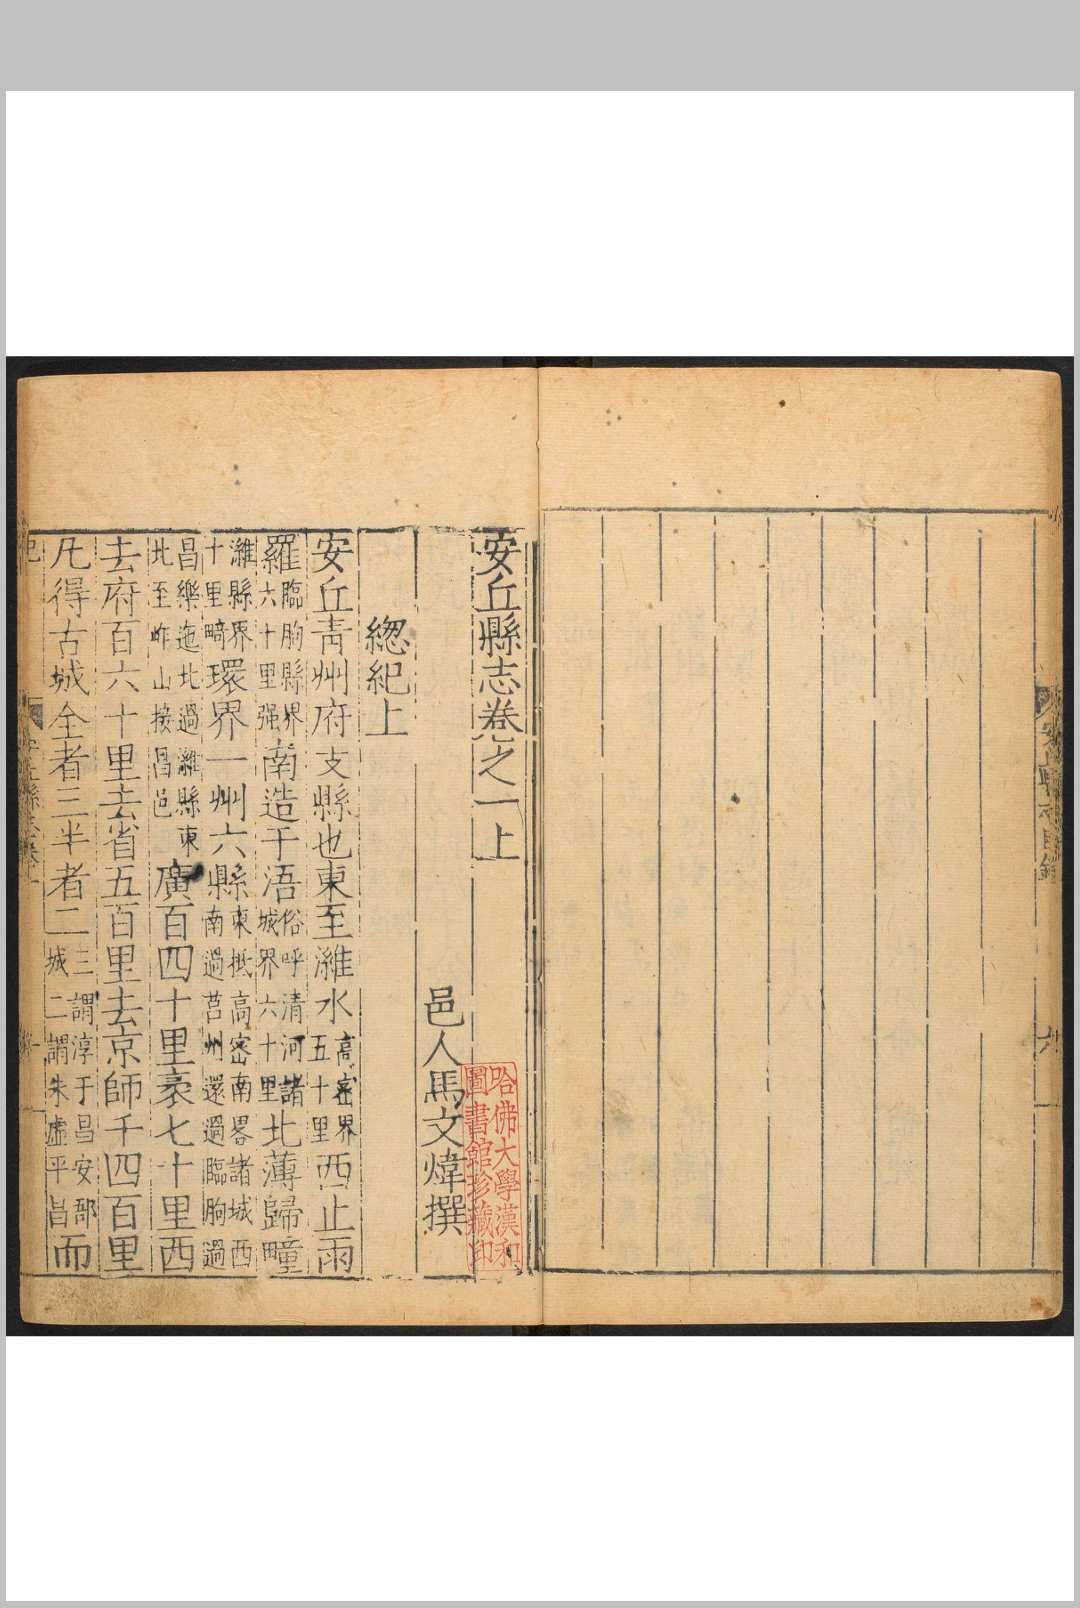 安丘縣志卷之一上
邑人馬文煒撰
緫紀上
安丘靑州府支縣也東至濰水高密界五十里西止雨
羅臨朐縣界六十里强南造于浯俗呼清河諸城界六十里北薄歸疃
濰縣界十里畸環界一州六縣東抵高密南畧諸城西南過莒州還過臨朐過
昌樂迤北過濰縣東北至岞山接昌邑廣百四十里袤七十里西
去府百六十里去省五百里去京師千四百里
凡得古城全者三半者二三謂淳于昌安郚城二謂朱虛平昌而
哈佛大學漢和
圖書館珍藏印